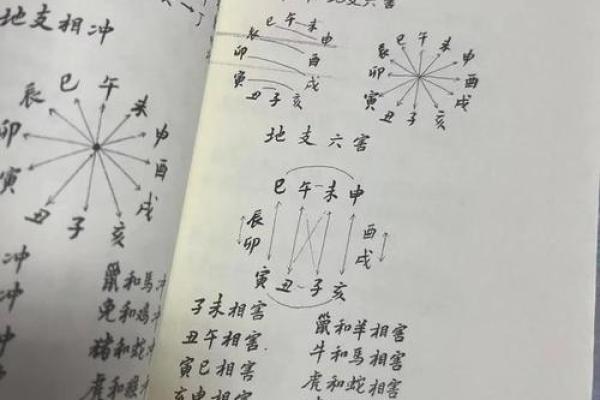 地支相冲
辰 巳 午 未
卯 申
寅 酉
丑 子 亥 戌
冲 鼠和馬
冲 兔和鸡
冲 猪和蛇
虎和猴
地支六害
辰 巳 午 未 申
卯 酉
寅 戌
丑 子 亥
辰 巳 午 未 申
卯 酉
寅 戌
丑 子 亥
地支六害
巳 午 未 申
辰 酉
卯 戌
寅 丑 子 亥
子未相害 鼠和羊相害
丑午相害 牛和馬相害
寅巳相害 虎和蛇相害
亥申相害